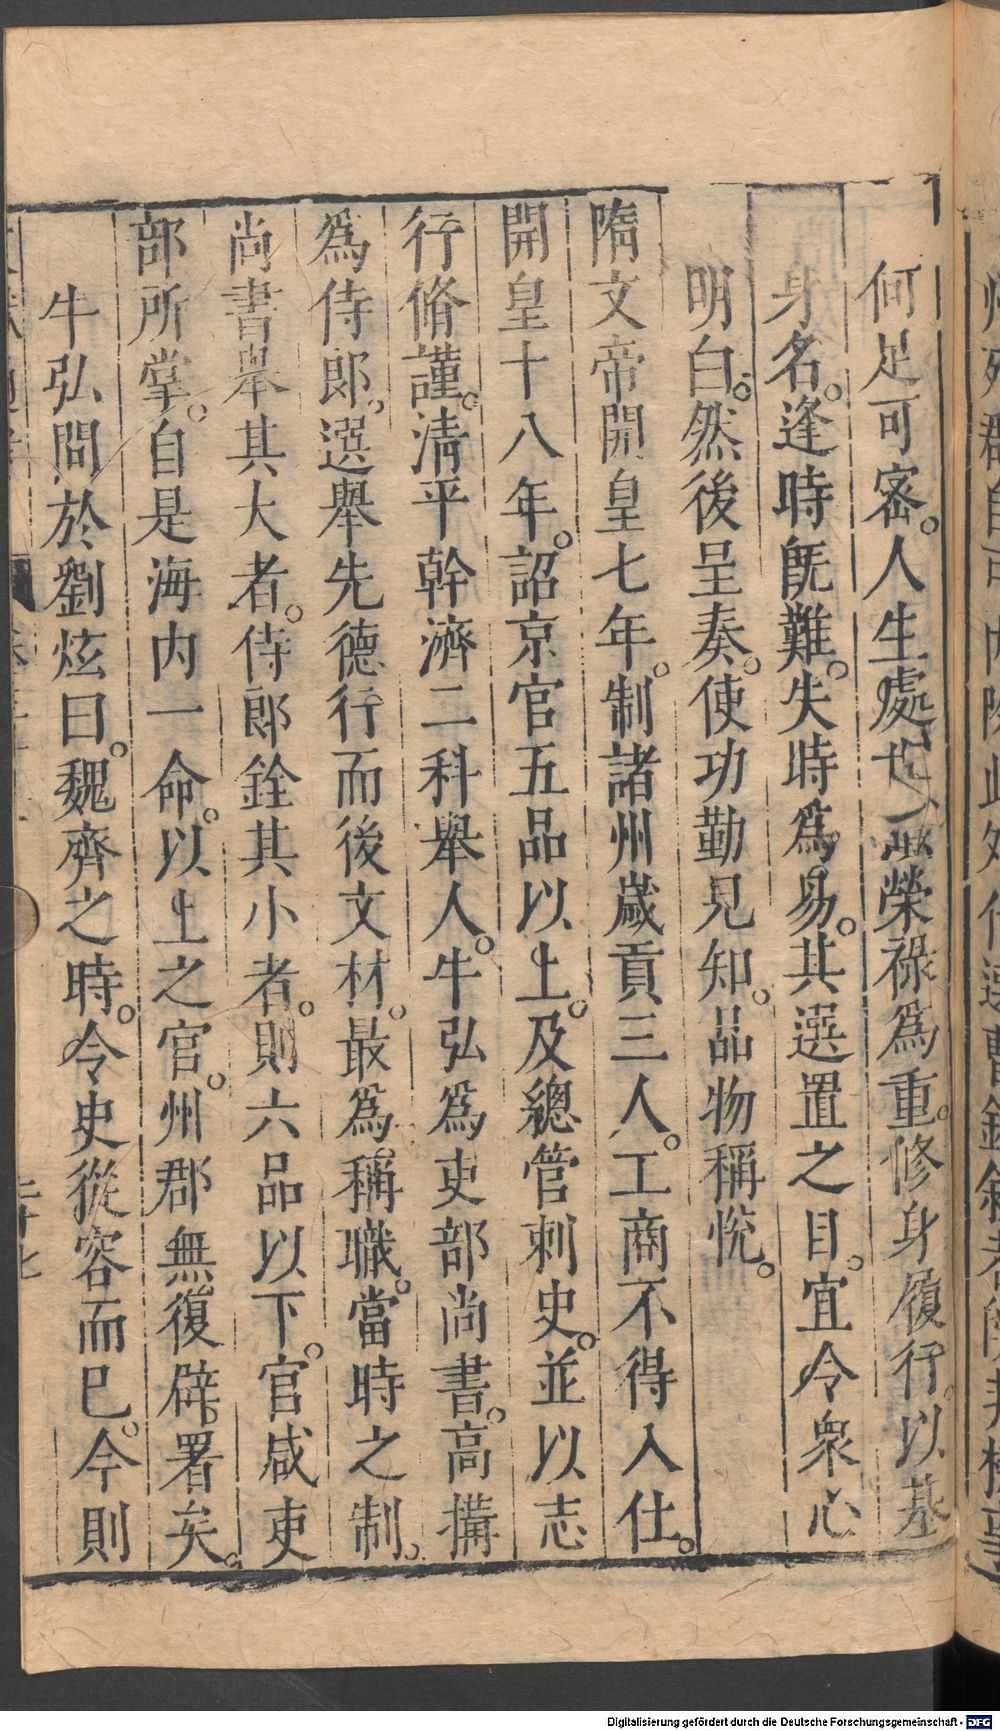 何足可密。人生處世榮祿爲重。修身履行。以基
身名。逢時旣難。失時爲易。其選置之目。宜令衆心
明白。然後呈奏。使功勤見知。品物稱悅。
隋文帝開皇七年。制諸州歲貢三人。工商不得入仕。
開皇十八年。詔京官五品以上。及總管刺史。並以志
行脩謹。清平幹濟二科舉人。牛弘爲吏部尚書。高構
爲侍郎。選舉先德行而後文材。最爲稱職。當時之制。
尚書舉其大者。侍郎銓其小者。則六品以下。官咸吏
部所掌。自是海内一命。以上之官。州郡無復辟。署矣。
牛弘問於劉炫曰。魏齊之時。令史從容而已。今則
二十七
Digitalisierung gefördert durch die Deutsche Forschungsgemeinschaft - DFG